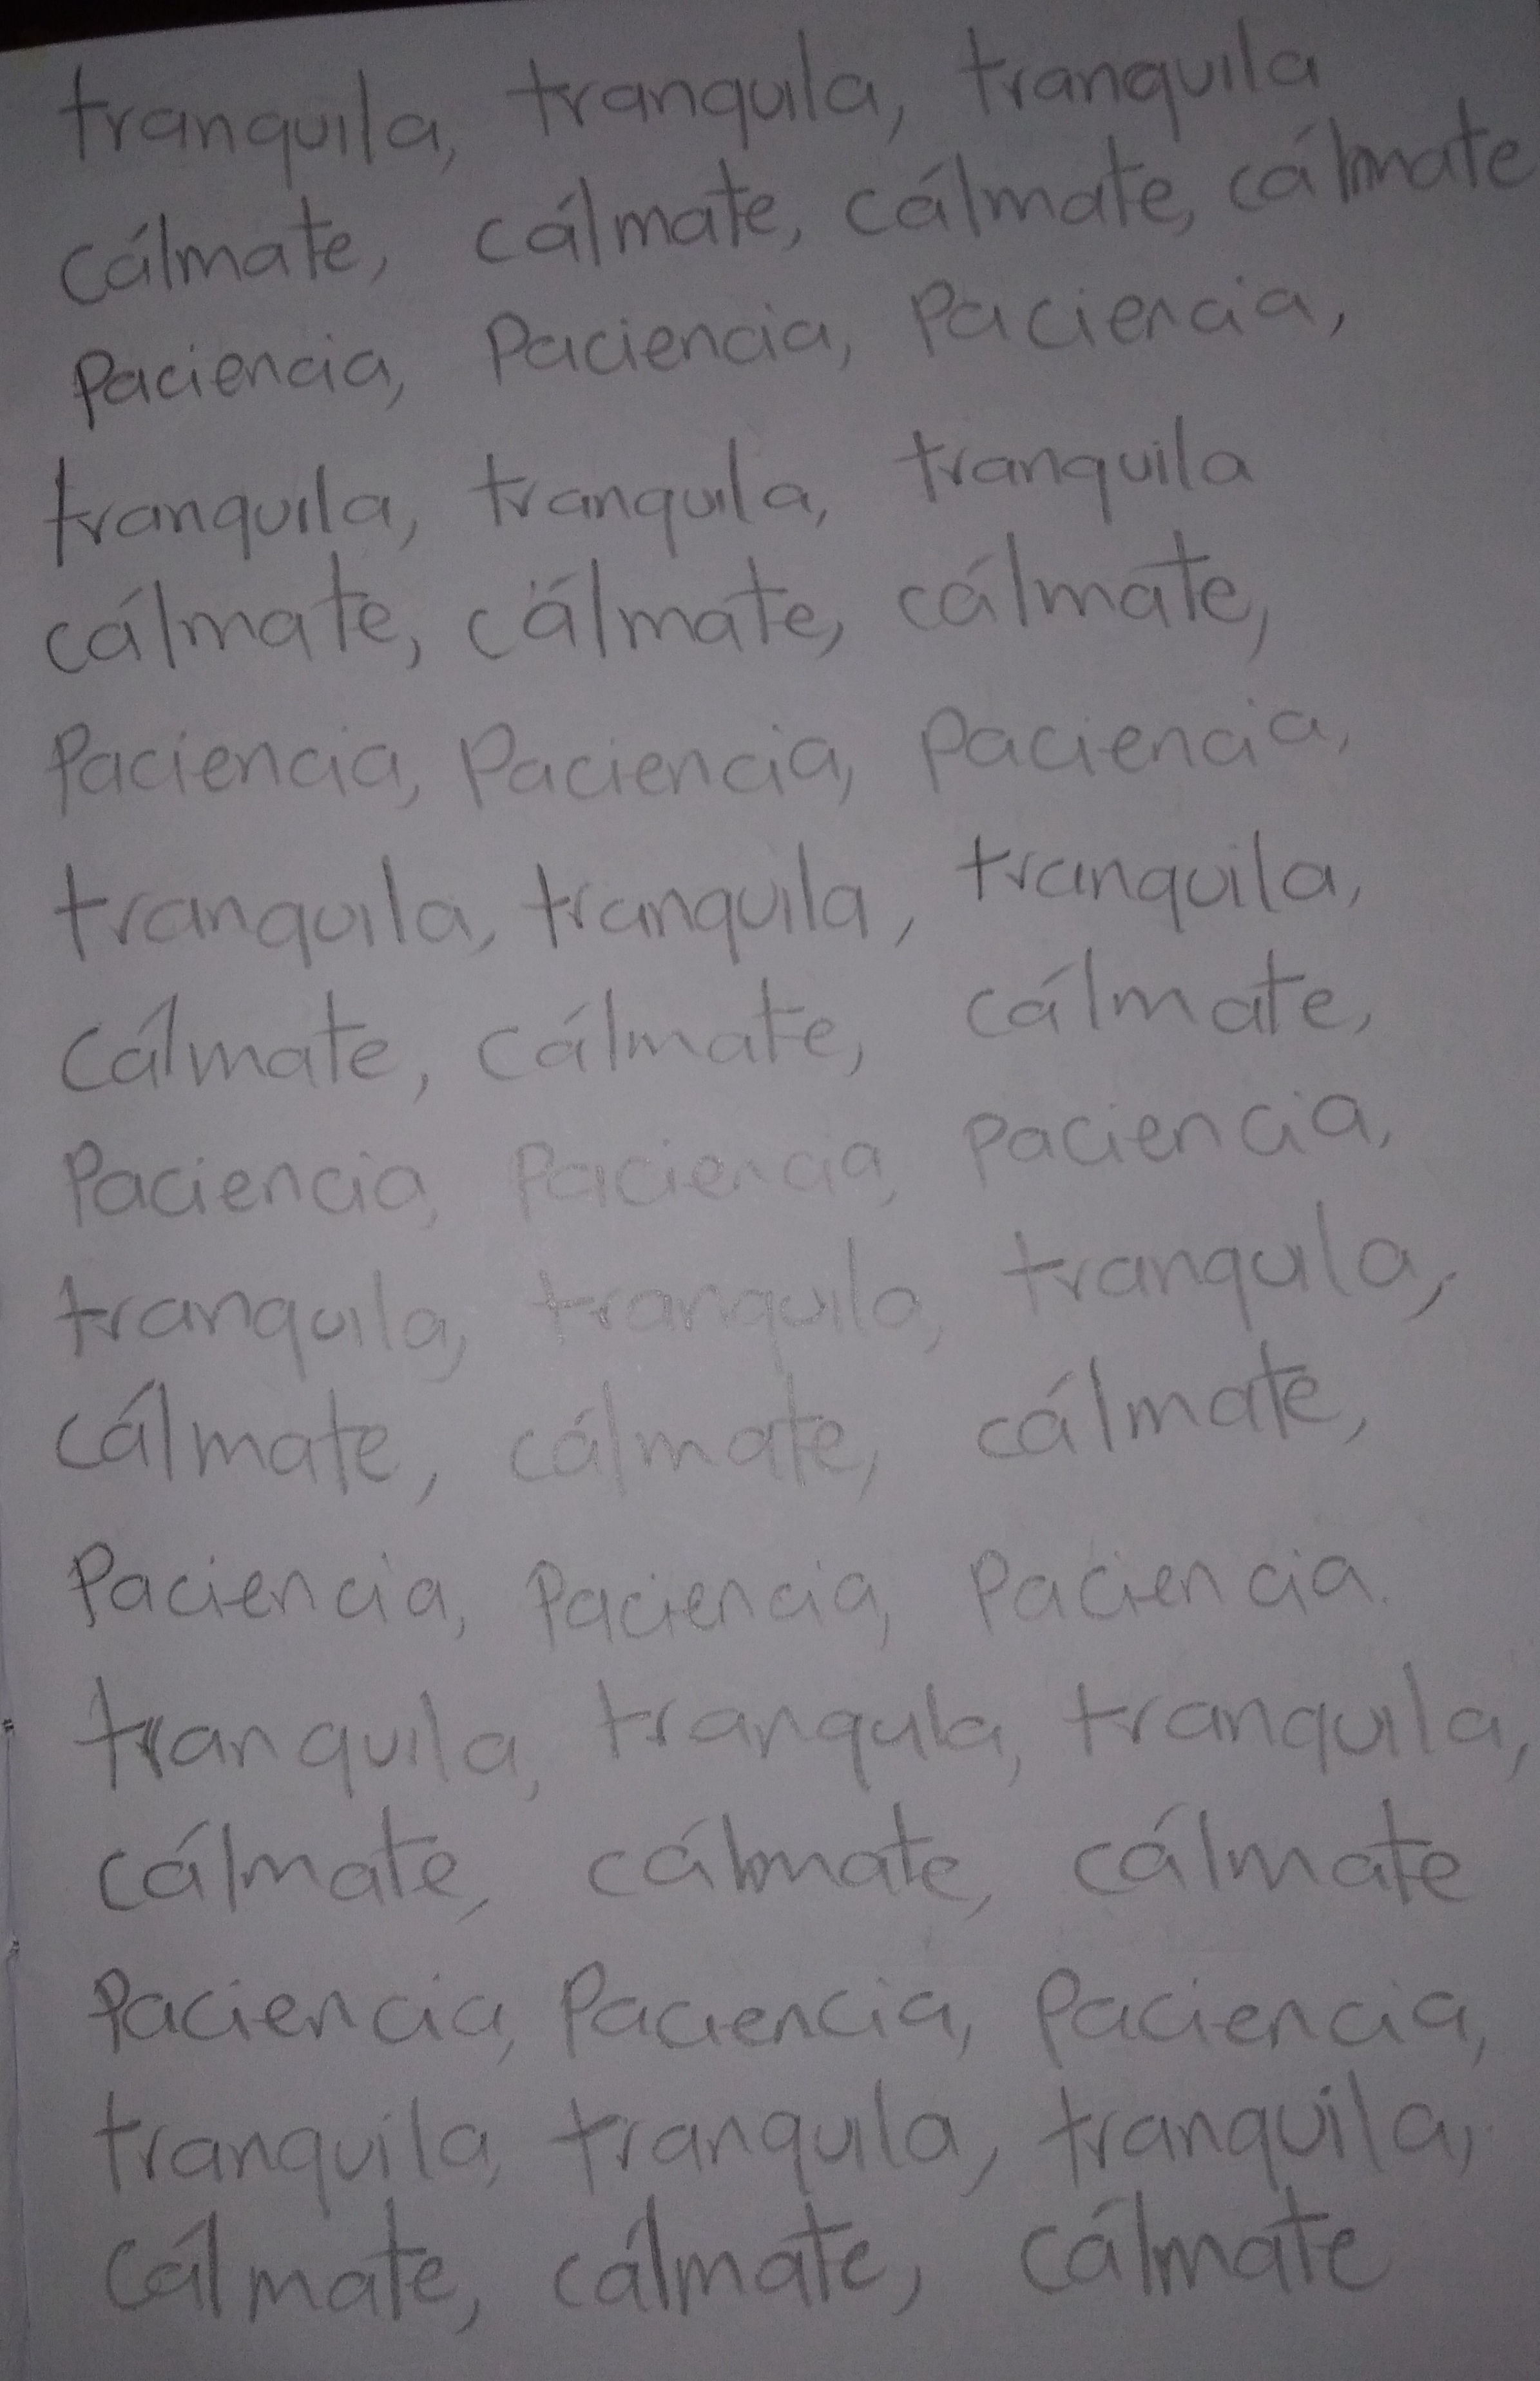 tranquila, tranquila, tranquila
cálmate, cálmate, cálmate, cálmate
Paciencia, Paciencia, Paciencia,
tranquila, tranquila, tranquila
cálmate, cálmate, cálmate,
Paciencia, Paciencia, Paciencia,
tranquila, tranquila, tranquila,
cálmate, cálmate, cálmate,
Paciencia, Paciencia, Paciencia,
tranquila, tranquila, tranquila,
cálmate, cálmate, cálmate,
Paciencia, Paciencia, Paciencia.
tranquila, tranquila, tranquila,
cálmate, cálmate, cálmate
Paciencia, Paciencia, Paciencia,
tranquila, tranquila, tranquila,
cálmate, cálmate, cálmate